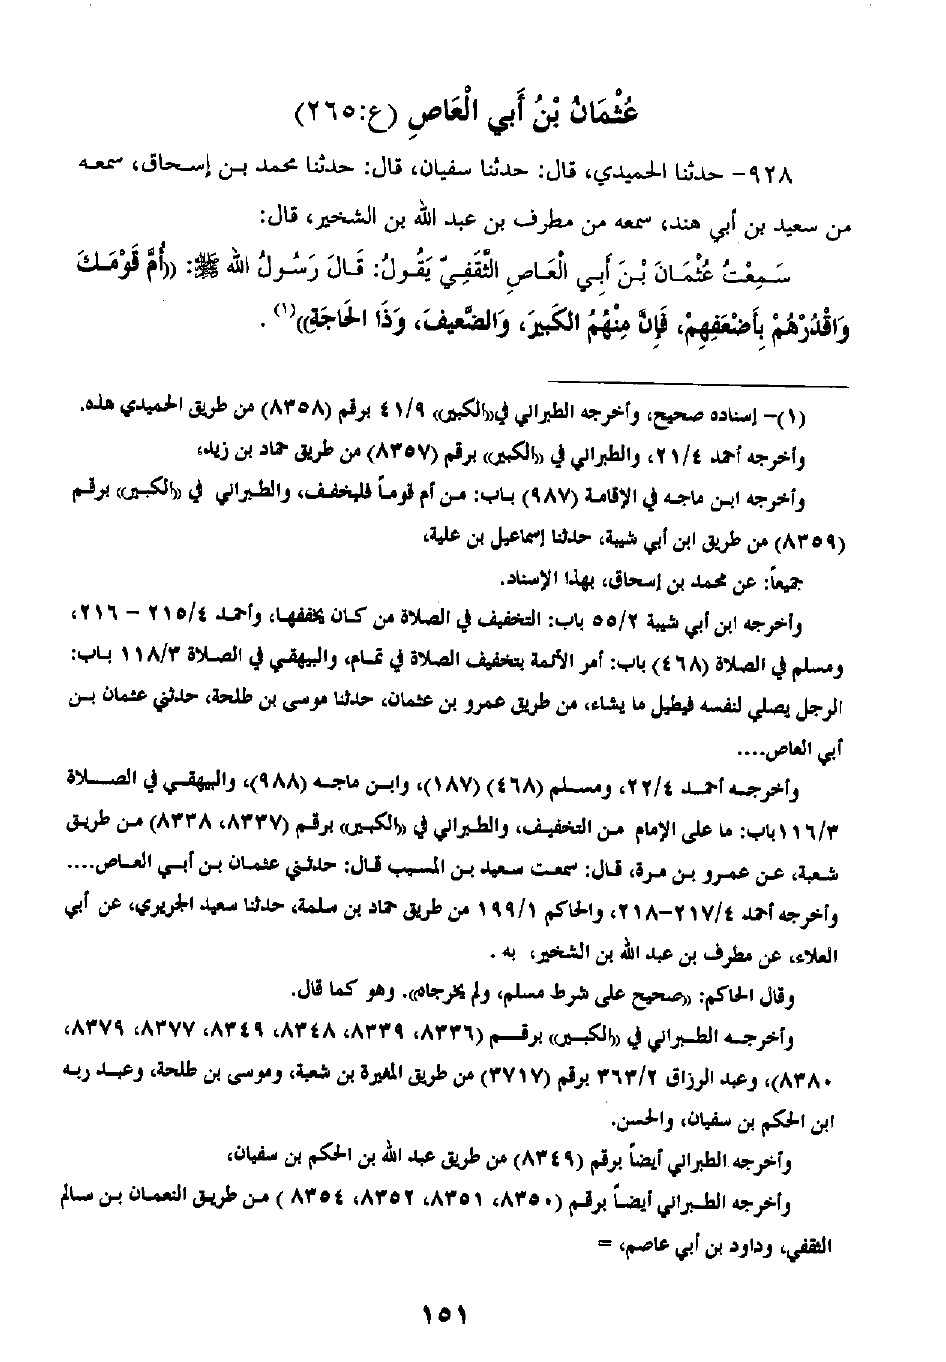 عُثْمَانُ بْنُ أَبي الْعَاصِ (ع:٢٦٥)
٩٢٨- حدثنا الحميدي، قال: حدثنا سفيان، قال: حدثنا محمد بن إسحاق، سمعه
من سعيد بن أبي هند، سمعه من مطرف بن عبد الله بن الشخير، قال:
سَمِعْتُ عُثْمَانَ بْنَ أَبِي الْعَاصِ الثَّقَفِيّ يَقُولُ: قَالَ رَسُولُ الله ﷺ: ((أُمَّ قَوْمَكَ
وَاقْدُرْهُمْ بِأَضْعَفِهِمْ، فَإِنَّ مِنْهُمُ الكَبِيرَ، وَالضَّعِيفَ، وَذَا الحَاجَةِ))(١) .
(١)- إسناده صحيح، وأخرجه الطبراني في((الكبير)) ٤١/٩ برقم (٨٣٥٨) من طريق الحميدي هذه.
وأخرجه أحمد ٢١/٤، والطبراني في ((الكبير)) برقم (٨٣٥٧) من طريق حماد بن زيد،
وأخرجه ابن ماجه في الإقامة (٩٨٧) باب: من أم قوماً فليخفف، والطبراني في ((الكبير)) برقم
(٨٣٥٩) من طريق ابن أبي شيبة، حدثنا إسماعيل بن علية،
جميعاً: عن محمد بن إسحاق، بهذا الإسناد.
وأخرجه ابن أبي شيبة ٥٥/٢ باب: التخفيف في الصلاة من كان يخففها، وأحمد ٢١٥/٤ - ٢١٦،
ومسلم في الصلاة (٤٦٨) باب: أمر الأئمة بتخفيف الصلاة في تمام، والبيهقي في الصلاة ١١٨/٣ باب:
الرجل يصلي لنفسه فيطيل ما يشاء، من طريق عمرو بن عثمان، حدثنا موسى بن طلحة، حدثني عثمان بن
أبي العاص....
وأخرجه أحمد ٢٢/٤، ومسلم (٤٦٨) (١٨٧)، وابن ماجه (٩٨٨)، والبيهقي في الصلاة
١١٦/٣باب: ما على الإمام من التخفيف، والطبراني في ((الكبير)) برقم (٨٣٣٧، ٨٣٣٨) من طريق
شعبة، عن عمرو بن مرة، قال: سمعت سعيد بن المسيب قال: حدثني عثمان بن أبي العاص....
وأخرجه أحمد ٢١٧/٤-٢١٨، والحاكم ١٩٩/١ من طريق حماد بن سلمة، حدثنا سعيد الجريري، عن أبي
العلاء، عن مطرف بن عبد الله بن الشخير، به .
وقال الحاكم: ((صحيح على شرط مسلم، ولم يخرجاه)). وهو كما قال.
وأخرجه الطبراني في ((الكبير)) برقم (٨٣٣٦، ٨٣٣٩، ٨٣٤٨، ٨٣٤٩، ٨٣٧٧، ٨٣٧٩،
٨٣٨٠)، وعبد الرزاق ٣٦٣/٢ برقم (٣٧١٧) من طريق المغيرة بن شعبة، وموسى بن طلحة، وعبد ربه
ابن الحكم بن سفيان، والحسن.
وأخرجه الطبراني أيضاً برقم (٨٣٤٩) من طريق عبد الله بن الحكم بن سفيان،
وأخرجه الطبراني أيضاً برقم (٨٣٥٠، ٨٣٥١، ٨٣٥٢، ٨٣٥٤ ) من طريق النعمان بن سالم
الثقفي، وداود بن أبي عاصم، =
١٥١